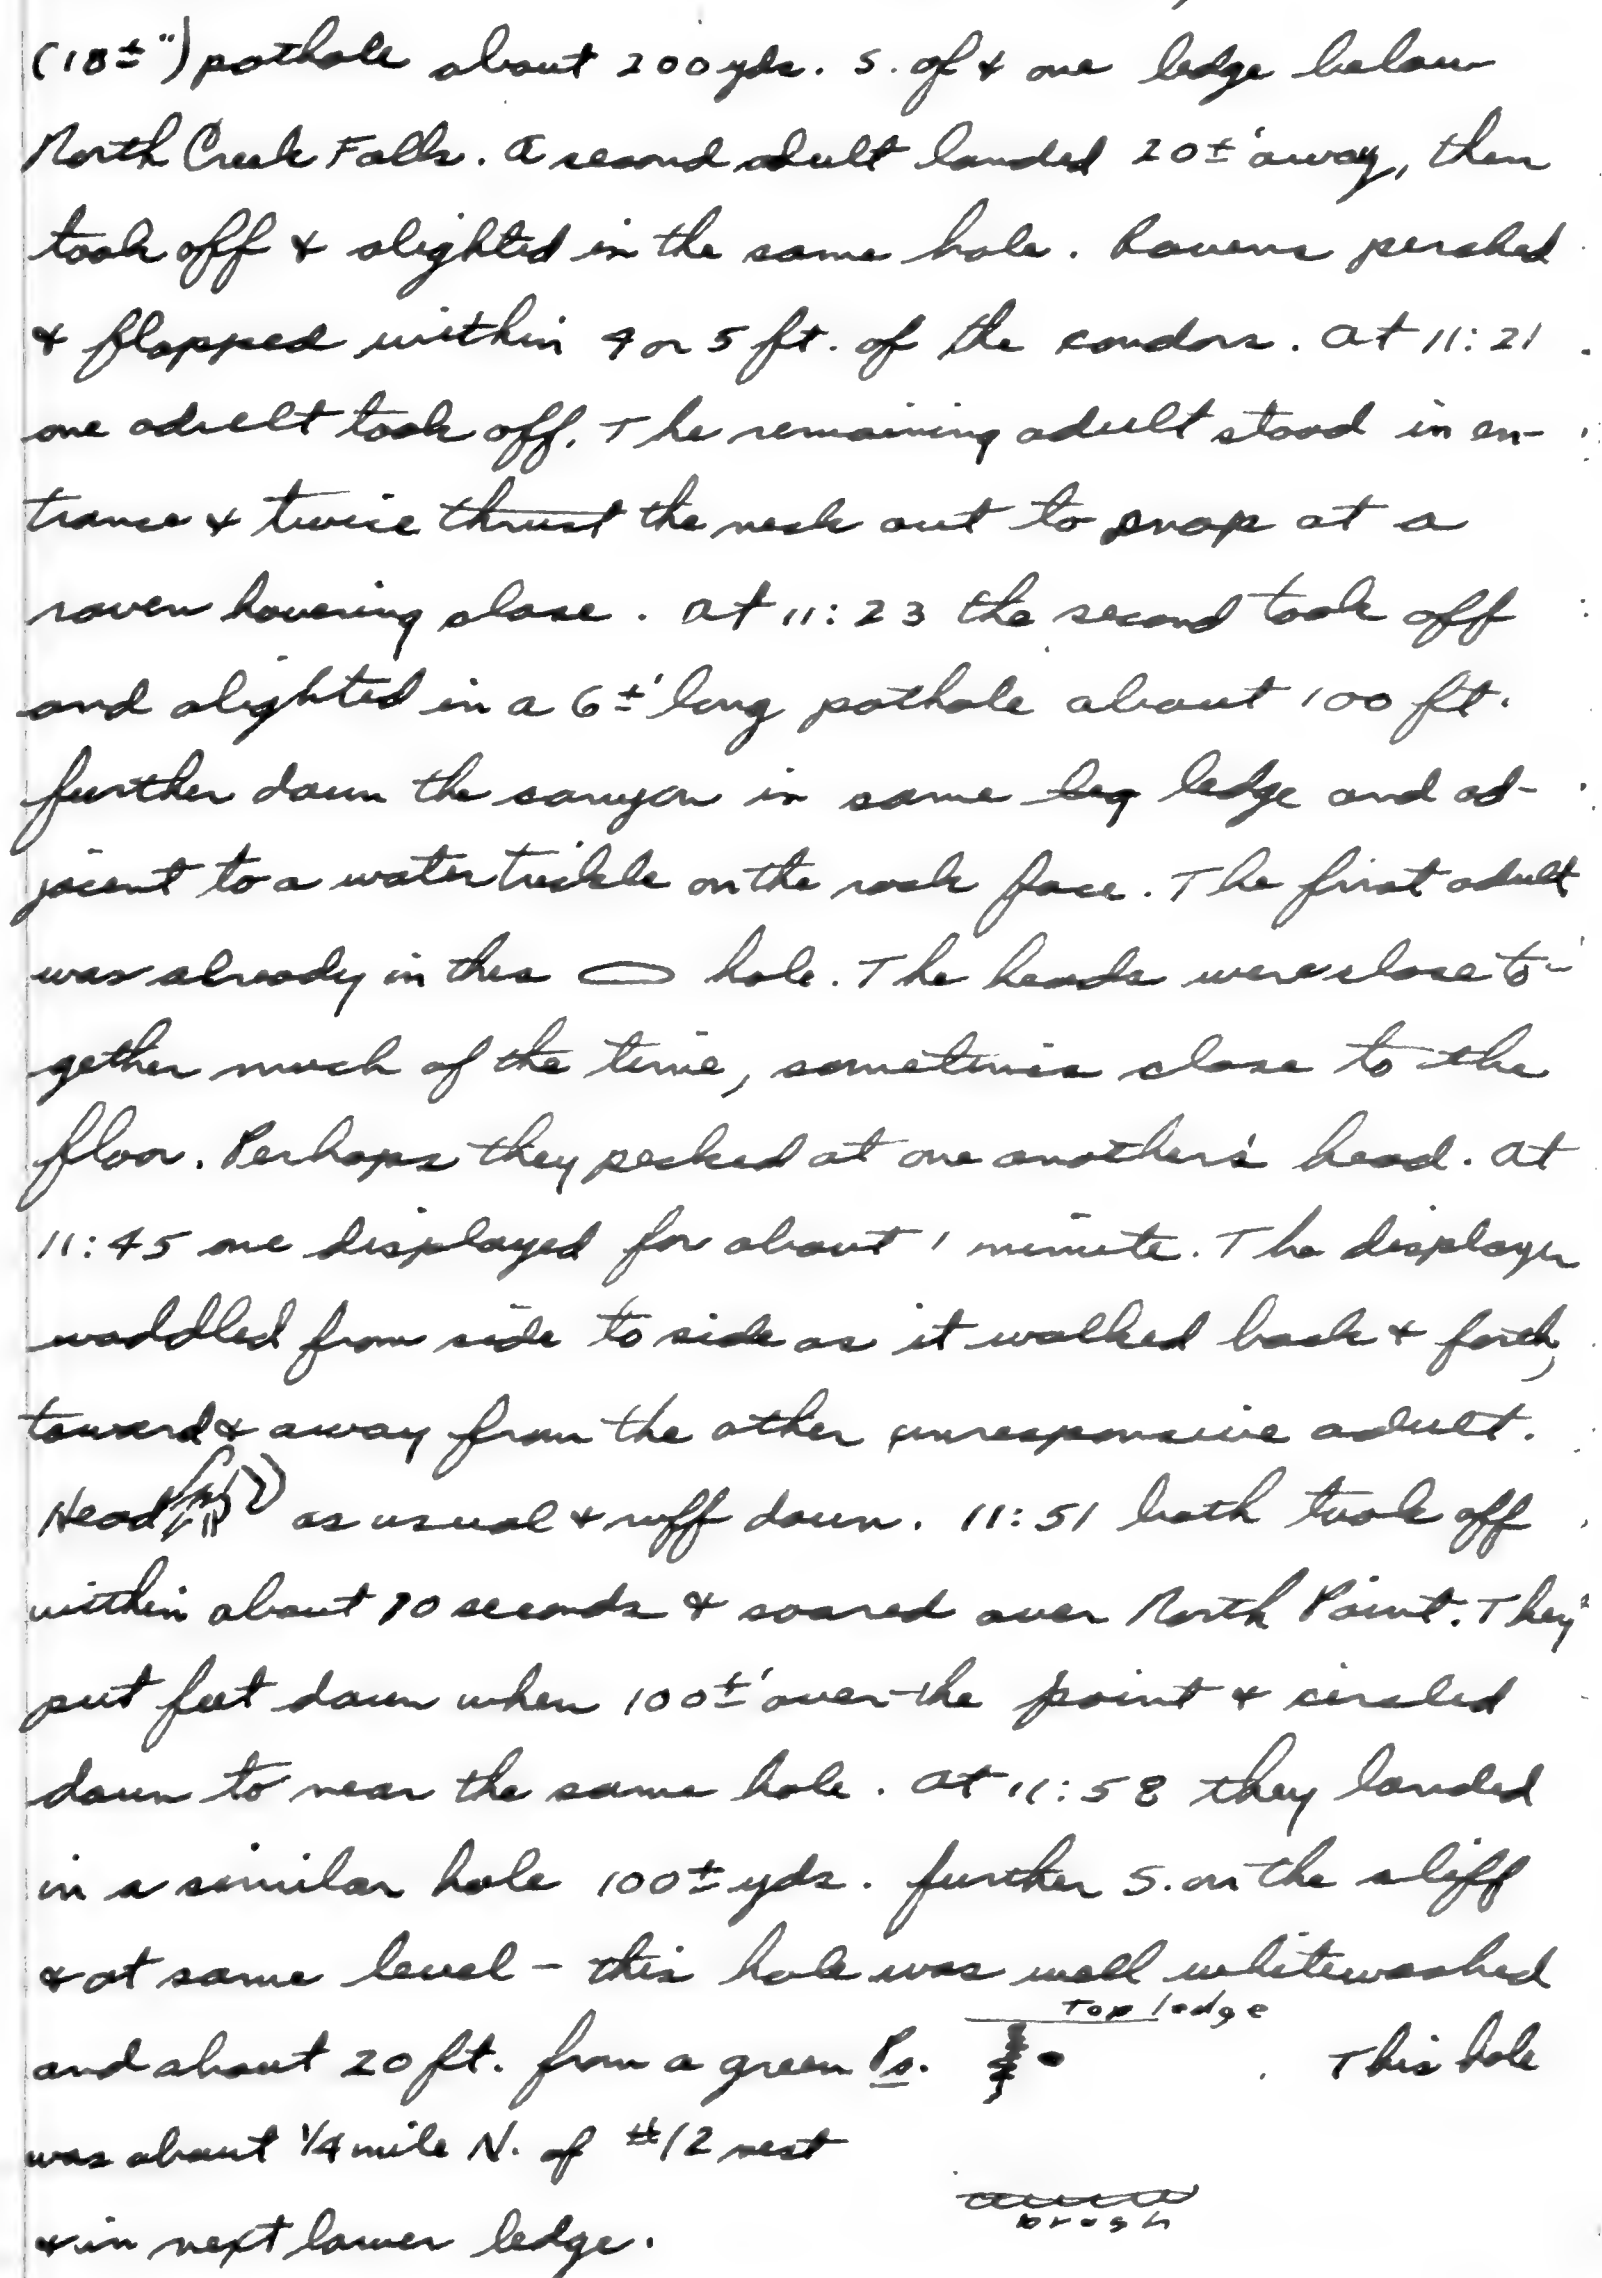 (18±") pothole about 200 yds. S. of & one ledge below
North Creek Falls. A second adult landed 20±' away, then
took off & alighted in the same hole. Ravens perched
& flapped within 4 or 5 ft. of the condors. At 11:21
one adult took off. The remaining adult stood in en-
trance & twice thrust the neck out to snap at a
raven hovering close. At 11:23 the second took off
and alighted in a 6±' long pothole about 100 ft.
further down the canyon in same leg ledge and ad-
jacent to a water trickle on the rock face. The first adult
was already in the hole. The heads were close to-
gether much of the time, sometimes close to the
floor. Perhaps they pecked at one another's head. At
11:45 one displayed for about 1 minute. The displayer
waddled from side to side as it walked back & forth,
toward & away from the other unresponsive adult.
Head as usual & ruff down. 11:51 both took off
within about 10 seconds & soared over North Point. They
put feet down when 100±' over the point & circled
down to near the same hole. At 11:58 they landed
in a similar hole 100± yds. further S. on the cliff
& at same level - this hole was well whitewashed
Top ledge
and about 20 ft. from a green Ps. This hole
was about 1/4 mile N. of #12 nest
brush
& in next lower ledge.